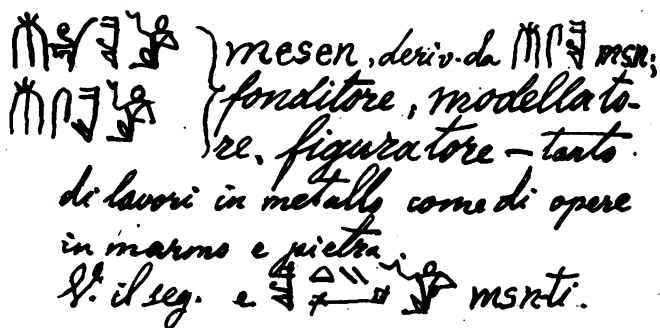 mesen, deriv. da msn;
fonditore, modellato-
re, figuratore – tanto
di lavori in metallo come di opere
in marmo e pietra.
V. il seg. e msn-ti.